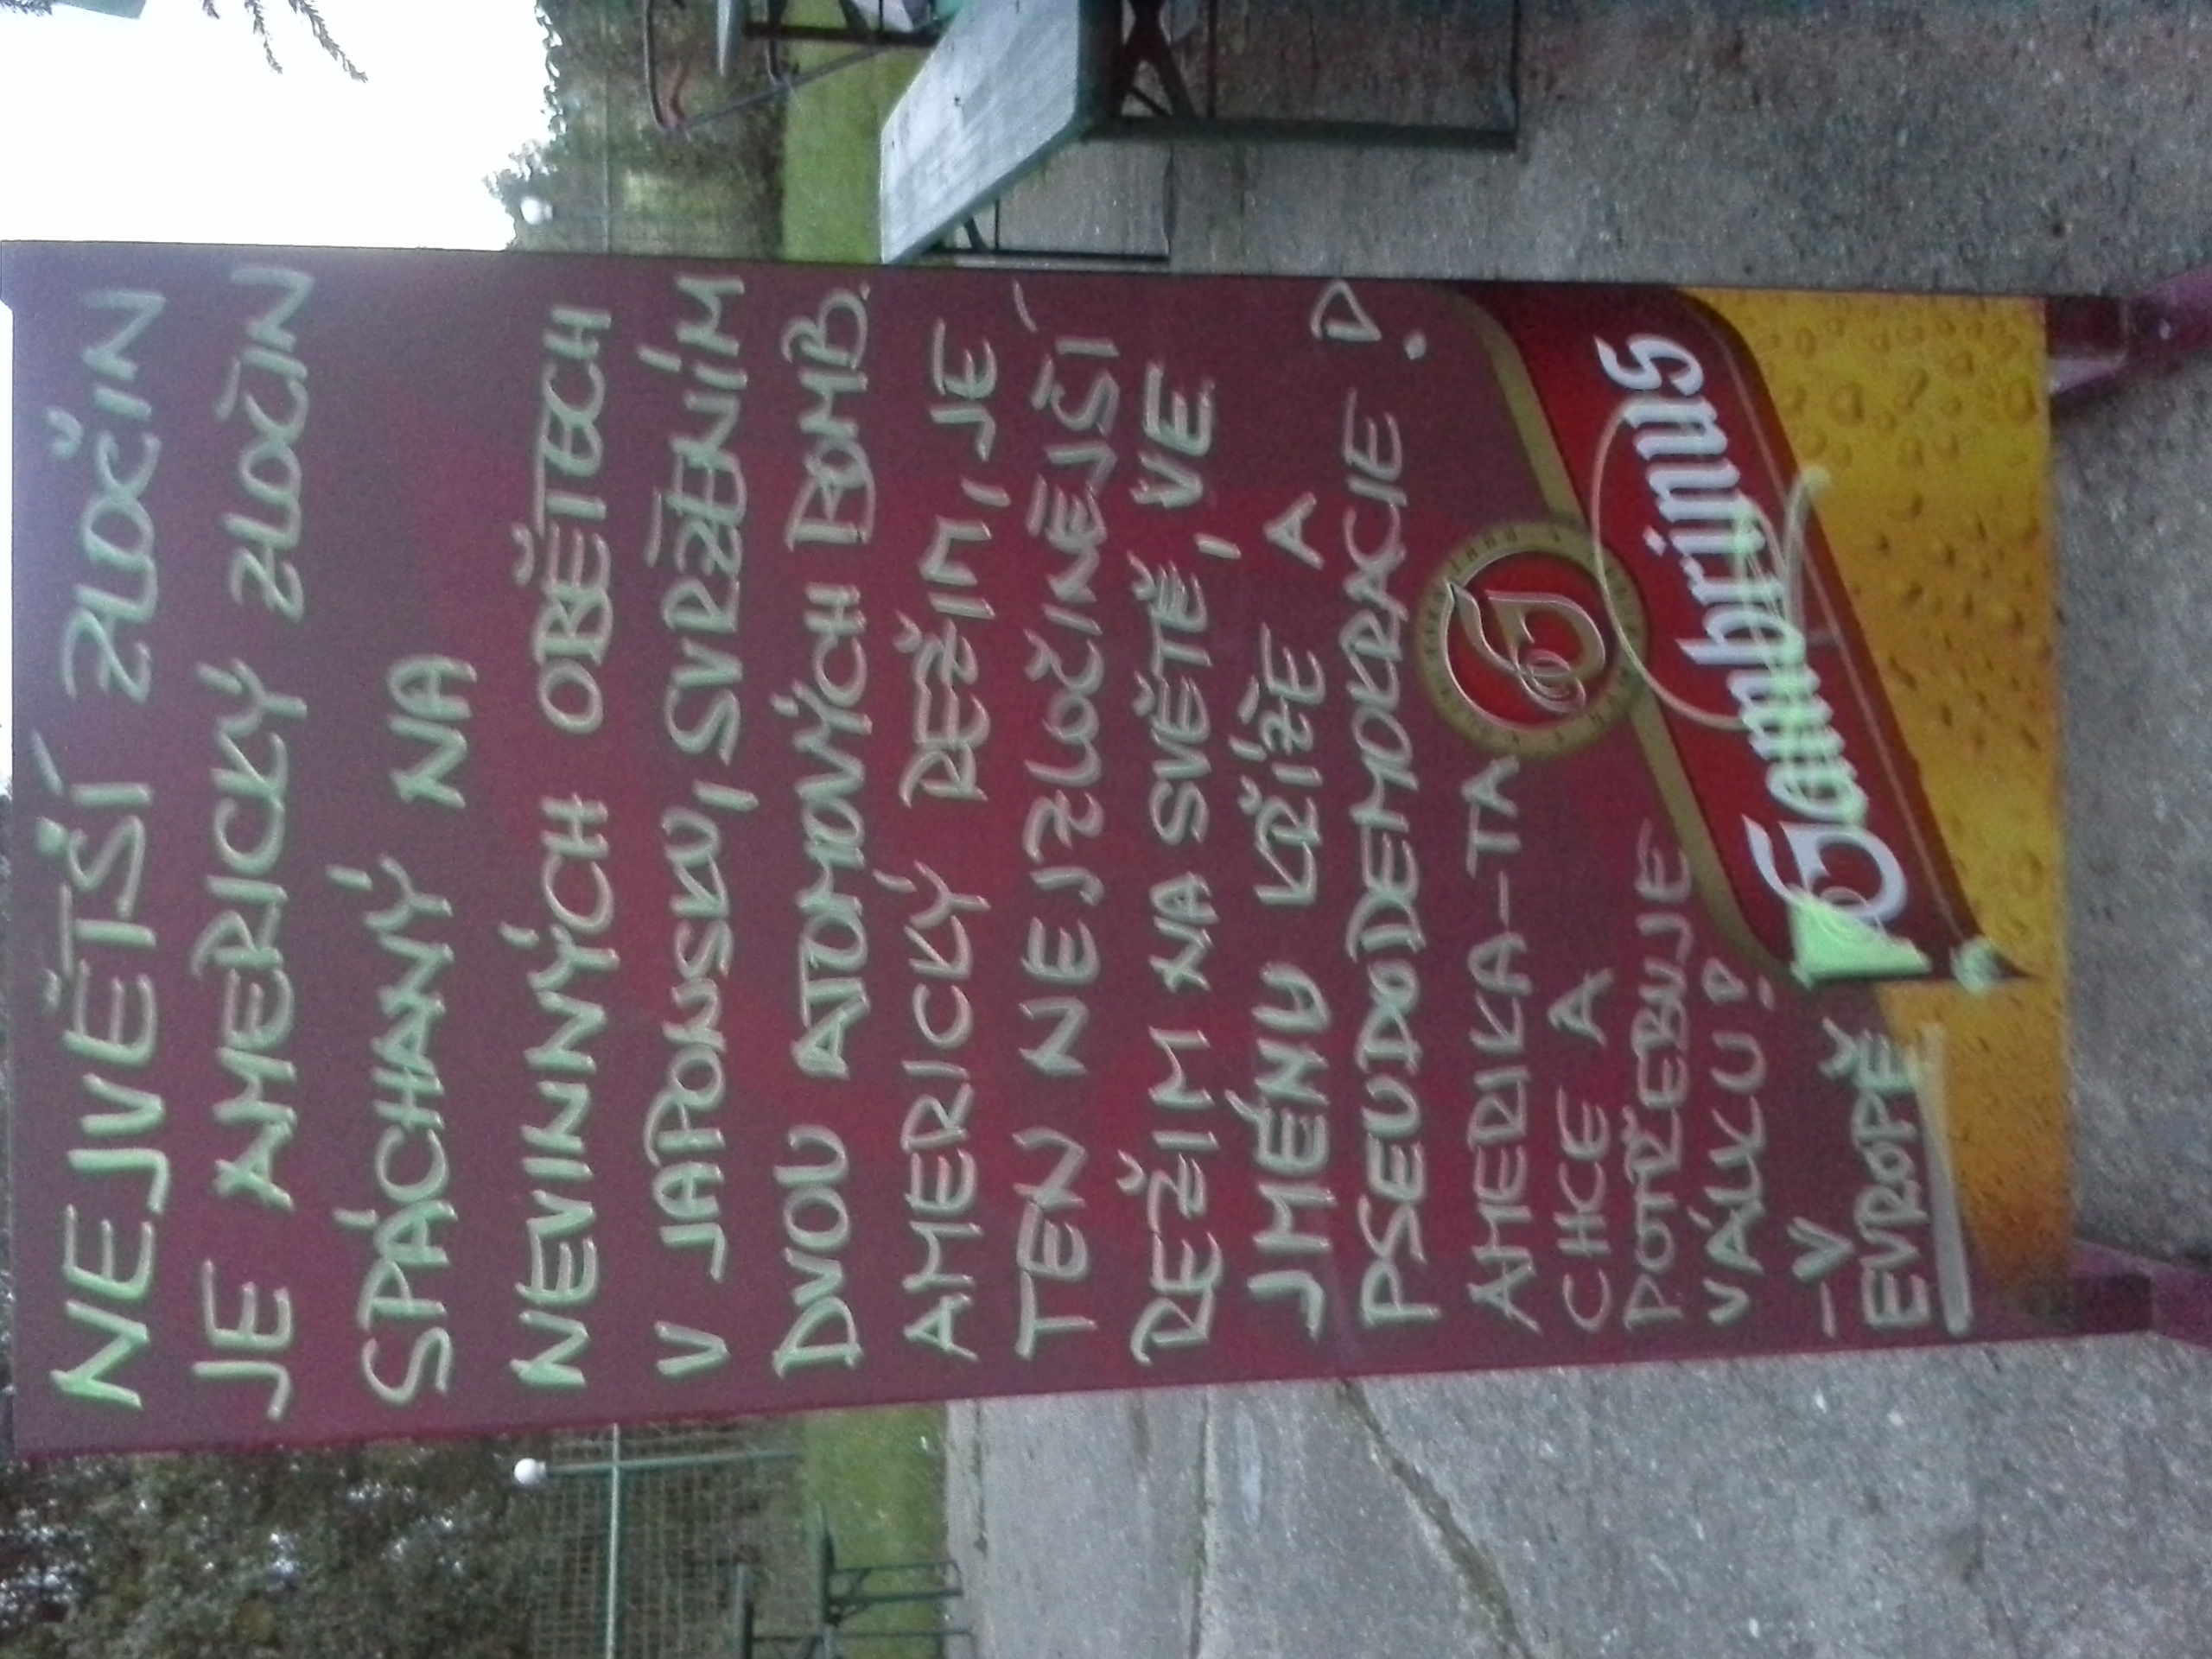 NEJVĚTŠÍ ZLOČIN
JE AMERICKÝ ZLOČIN
SPÁCHANÝ NA
NEVINNÝCH OBĚTECH
V JAPONSKU, SVRŽENÍM
DVOU ATOMOVÝCH BOMB.
AMERICKÝ REŽIM, JE
TEN NEJZLOČINĚJŠÍ
REŽIM NA SVĚTĚ, VE
JMÉNU KŘÍŽE A
PSEUDODEMOKRACIE?
AMERIKA-TA
CHCE A
POTŘEBUJE
VÁLKU?
-V
EVROPĚ
Gambrinus